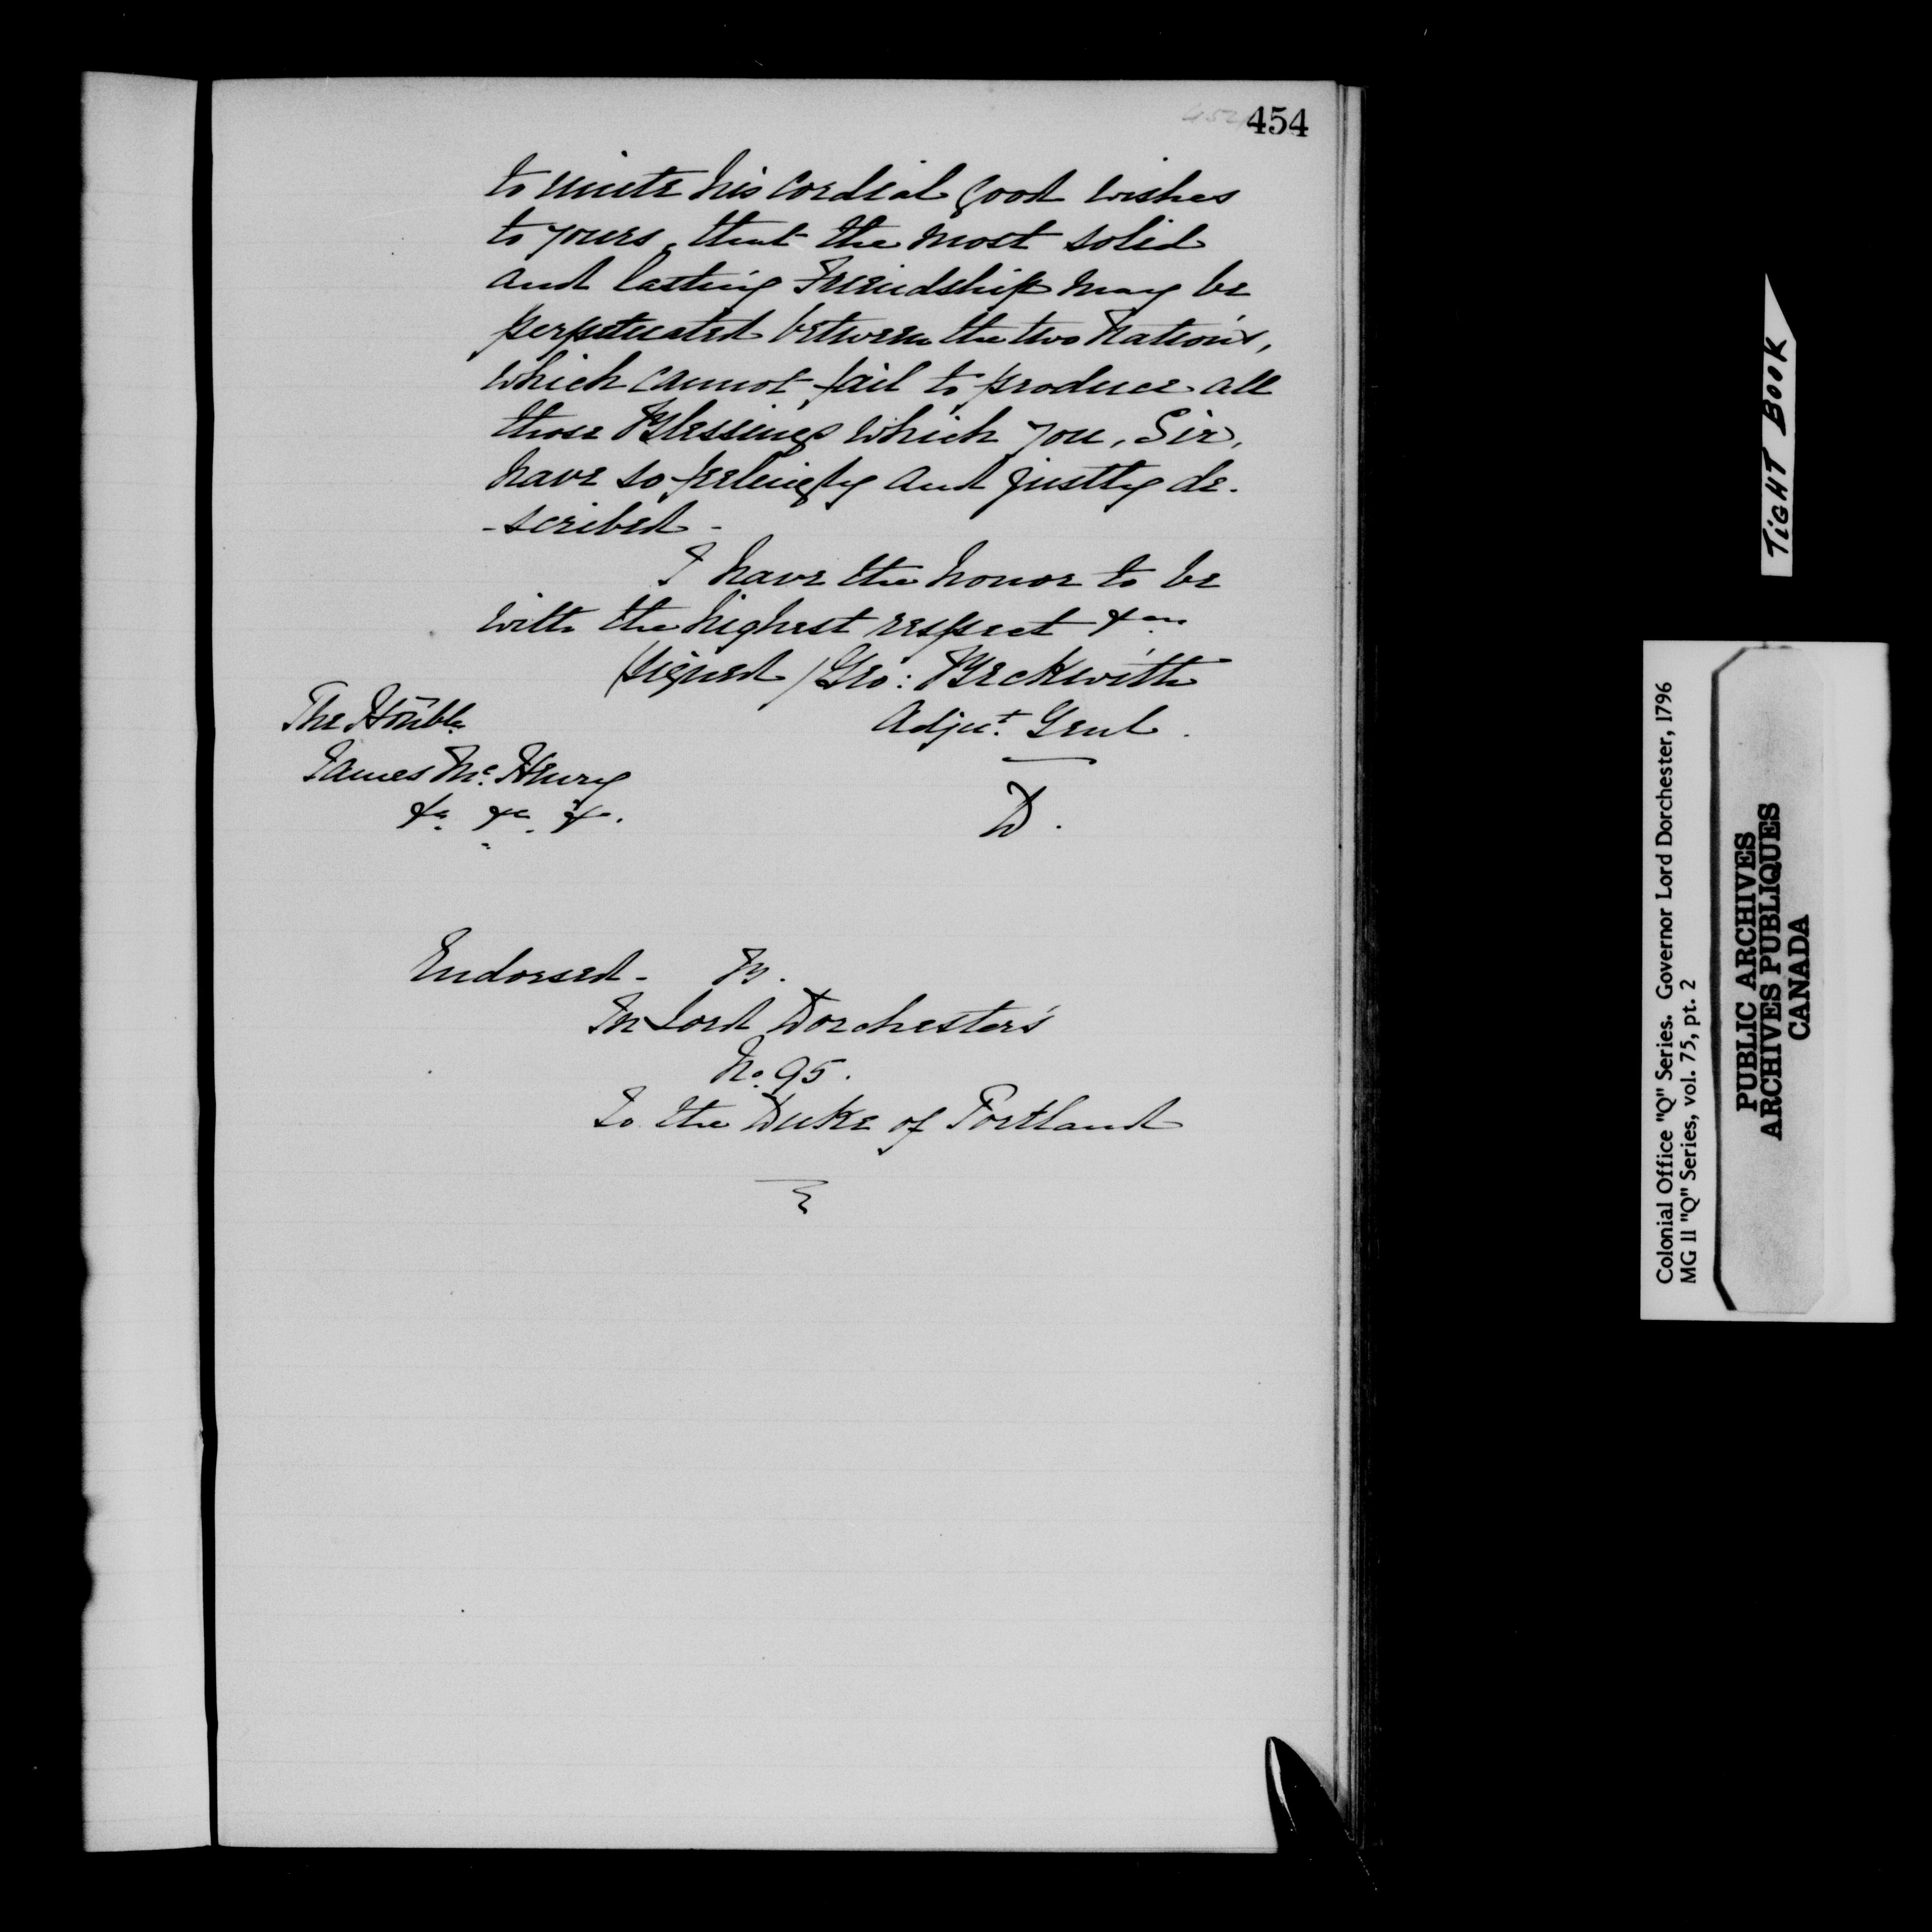 454
to unite his cordial good wishes
to yours, that the most solid
and lasting Friendship may be
perpetuated between the two Nations,
which cannot fail to produce all
those Blessings which you, Sir,
have so feelingly and justly de-
-scribed -
I have the honor to be
with the highest respect &ca
(signed) Geo: Beckwith
Adjut. Genl.
The Honble
James Mc. Henry
&c. &c. &c.
D.
Endorsed - B.
In Lord Dorchester's
No. 95.
To the Duke of Portland
TIGHT BOOK
Colonial Office "Q" Series. Governor Lord Dorchester, 1796
MG 11 "Q" Series, vol. 75, pt. 2
PUBLIC ARCHIVES
ARCHIVES PUBLIQUES
CANADA